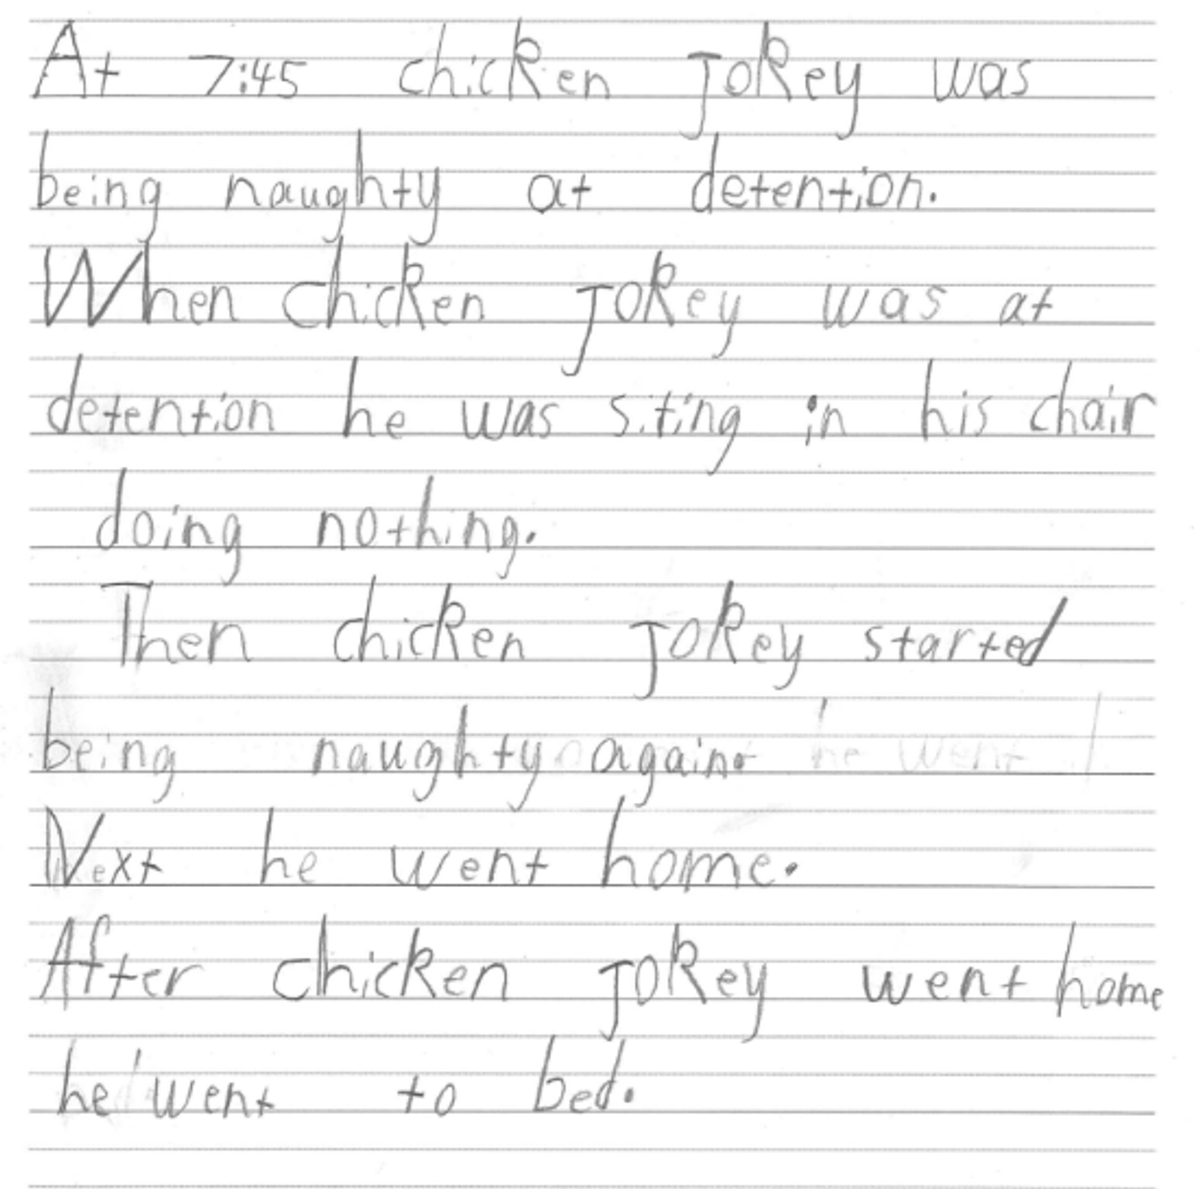 At 7:45 chicken jokey was
being naughty at detention.
When chicken jokey was at
detention he was siting in his chair
doing nothing.
Then chicken jokey started
being naughty again. he went
Next he went home.
After chicken jokey went home
he went to bed.